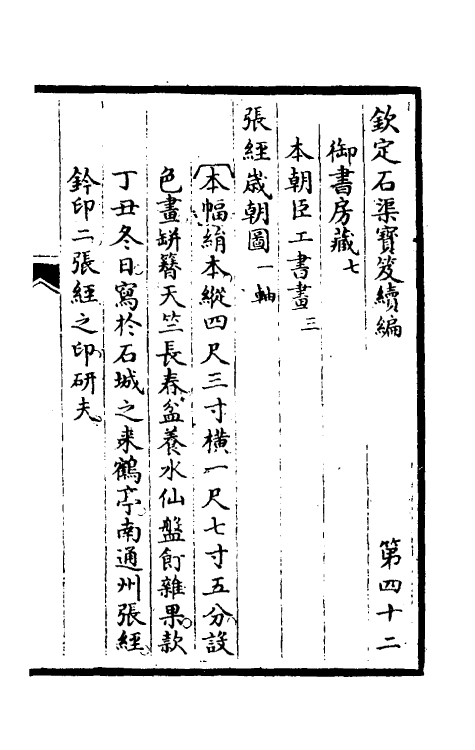 欽定石渠寶笈續編 第四十二
御書房藏七
本朝臣工書畫三
張經歲朝圖一軸
本幅絹本縱四尺三寸橫一尺七寸五分設
色畫缾簪天竺長春盆養水仙盤飣雜果款
丁丑冬日寫於石城之來鶴亭南通州張經
鈐印二張經之印研夫